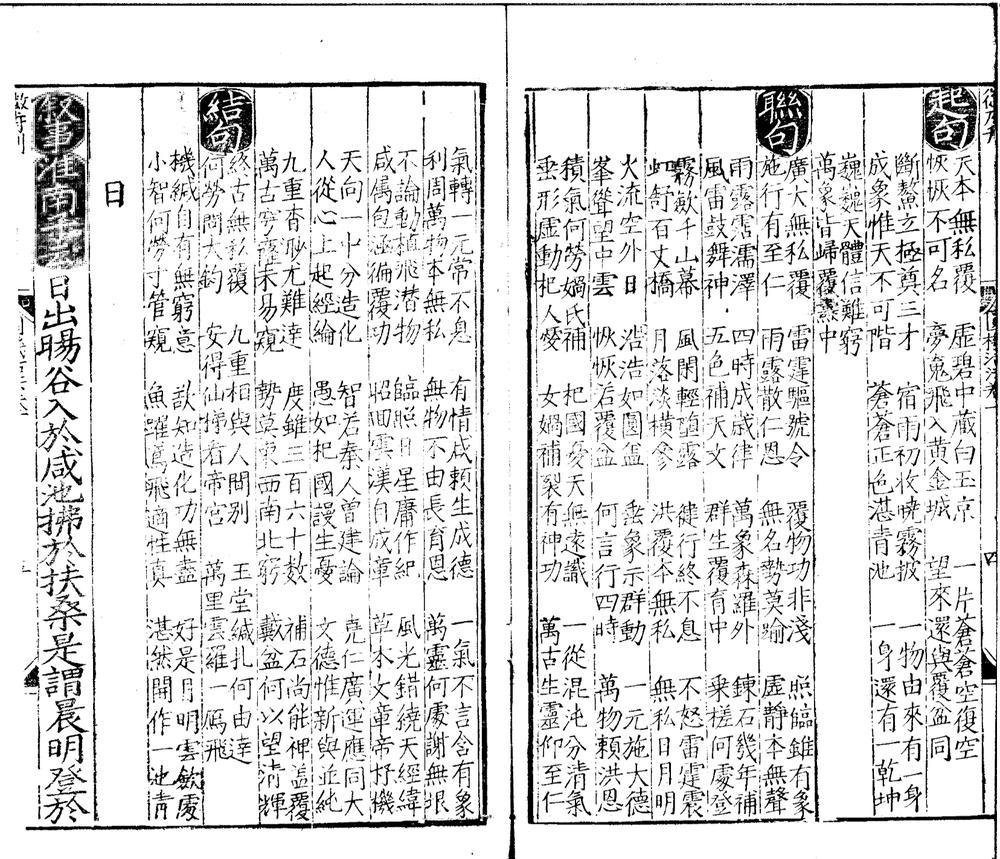 起句
天本無私覆　虛碧中藏白玉京　一片蒼蒼空復空
恢恢不可名　夢魂飛入黃金城　望來還與覆盆同
斷鰲立極奠三才　宿雨初收曉霧披　一物由來有一身
成象惟天不可階　蒼蒼正色湛青池　一身還有一乾坤
巍巍天體信難窮
萬象皆歸覆燾中
聯句
廣大無私覆　雷霆驅號令　覆物功非淺　照臨雖有象
施行有至仁　雨露散仁恩　無名勢莫踰　虛靜本無聲
雨露霑濡澤　四時成歲律　萬象森羅外　鍊石幾年補
風雷鼓舞神　五色補天文　群生覆育中　乘槎何處登
霧斂千山幕　風閑輕墮露　健行終不息　不怒雷霆震
虹舒百丈橋　月落淡橫參　洪覆本無私　無私日月明
火流空外日　浩浩如圓蓋　垂象示群動　一元施大德
峯聳望中雲　恢恢若覆盆　何言行四時　萬物賴洪恩
積氣何勞媧氏補　杞國憂天無遠識　一從混沌分清氣
垂形虛動杞人憂　女媧補裂有神功　萬古生靈仰至仁
氣轉一元常不息　有情咸賴生成德　一氣不言含有象
利周萬物本無私　無物不由長育恩　萬靈何處謝無垠
不論動植飛潛物　臨照日星庸作紀　風光錯繞天經緯
咸屬包涵徧覆功　昭回雲漢自成章　草木文章帝杼機
天向一中分造化　智若秦人曾建論　堯仁廣運應同大
人從心上起經綸　愚如杞國謾生憂　文德惟新與並純
九重杳眇尤難達　度雖三百六十數　補石尚能裨蓋覆
萬古穹窿未易窺　勢莫東西南北窮　戴盆何以望清輝
結句
終古無私覆　九重相與人間別　玉堂緘扎何由達
何勞問大鈞　安得仙梯看帝宮　萬里雲羅一鴈飛
機緘自有無窮意　孰知造化功無盡　好是月明雲斂處
小智何勞寸管窺　魚躍鳶飛適性真　湛然開作一池青
日
敍事淮南子
日出暘谷入於咸池拂於扶桑是謂晨明登於